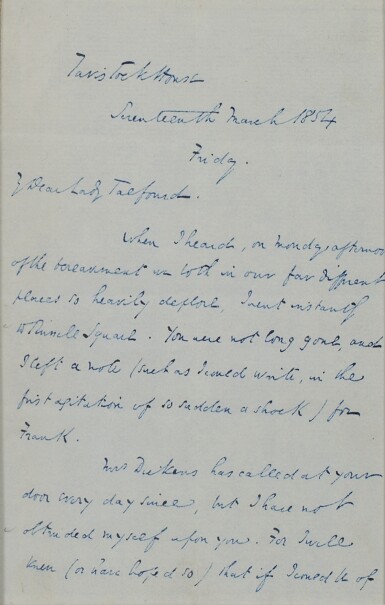 Tavistock House
Seventeenth March 1854
Friday.
My Dear Lady Talfourd.
When I heard, on Monday afternoon
of the bereavement we both in our far different
places so heavily deplore, I went instantly
to Russell Square. You were not long gone, and
I left a note (such as I could write, in the
first agitation of so sudden a shock) for
Frank.
Mrs Dickens has called at your
door every day since, but I have not
obtruded myself upon you. For I well
knew (or have hoped so) that if I could be of